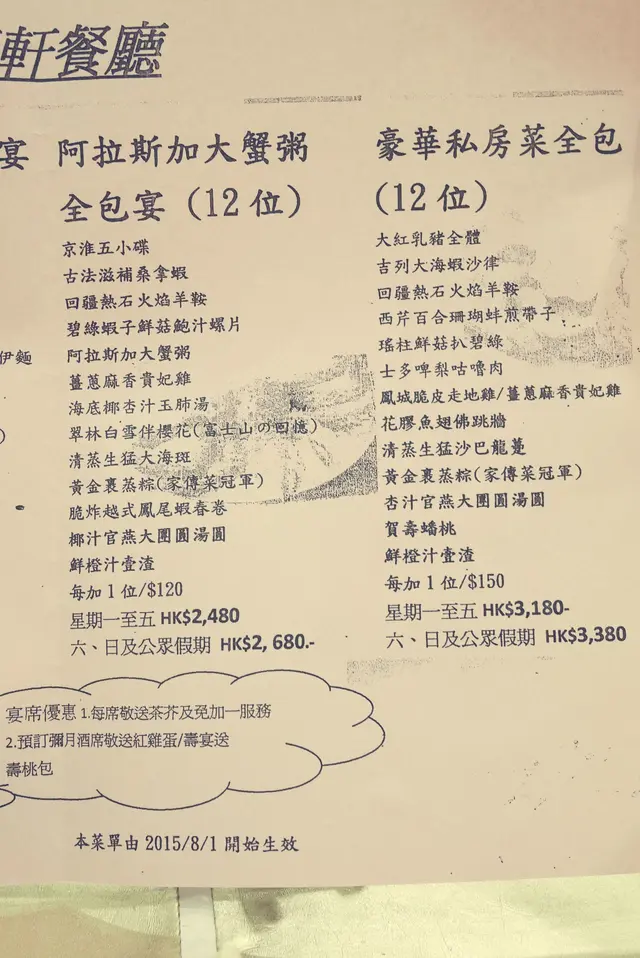 軒餐廳
宴
阿拉斯加大蟹粥
全包宴（12位）
京淮五小碟
古法滋補桑拿蝦
回疆熱石火焰羊鞍
碧綠蝦子鮮菇鮑汁螺片
伊麵
阿拉斯加大蟹粥
薑蔥麻香貴妃雞
海底椰杏汁玉肺湯
)
翠林白雪伴櫻花(富士山の回憶)
清蒸生猛大海斑
黃金裹蒸粽(家傳菜冠軍)
脆炸越式鳳尾蝦春卷
椰汁官燕大團圓湯圓
鮮橙汁壹渣
每加1位/$120
星期一至五 HK$2,480
六、日及公眾假期 HK$2, 680.-
豪華私房菜全包
(12位)
大紅乳豬全體
吉列大海蝦沙律
回疆熱石火焰羊鞍
西芹百合珊瑚蚌煎帶子
瑤柱鮮菇扒碧綠
士多啤梨咕嚕肉
鳳城脆皮走地雞/薑蔥麻香貴妃雞
花膠魚翅佛跳牆
清蒸生猛沙巴龍躉
黃金裹蒸粽(家傳菜冠軍)
杏汁官燕大團圓湯圓
賀壽蟠桃
鮮橙汁壹渣
每加1位/$150
星期一至五 HK$3,180-
六、日及公眾假期 HK$3,380
宴席優惠 1.每席敬送茶芥及免加一服務
2.預訂彌月酒席敬送紅雞蛋/壽宴送
壽桃包
本菜單由 2015/8/1 開始生效